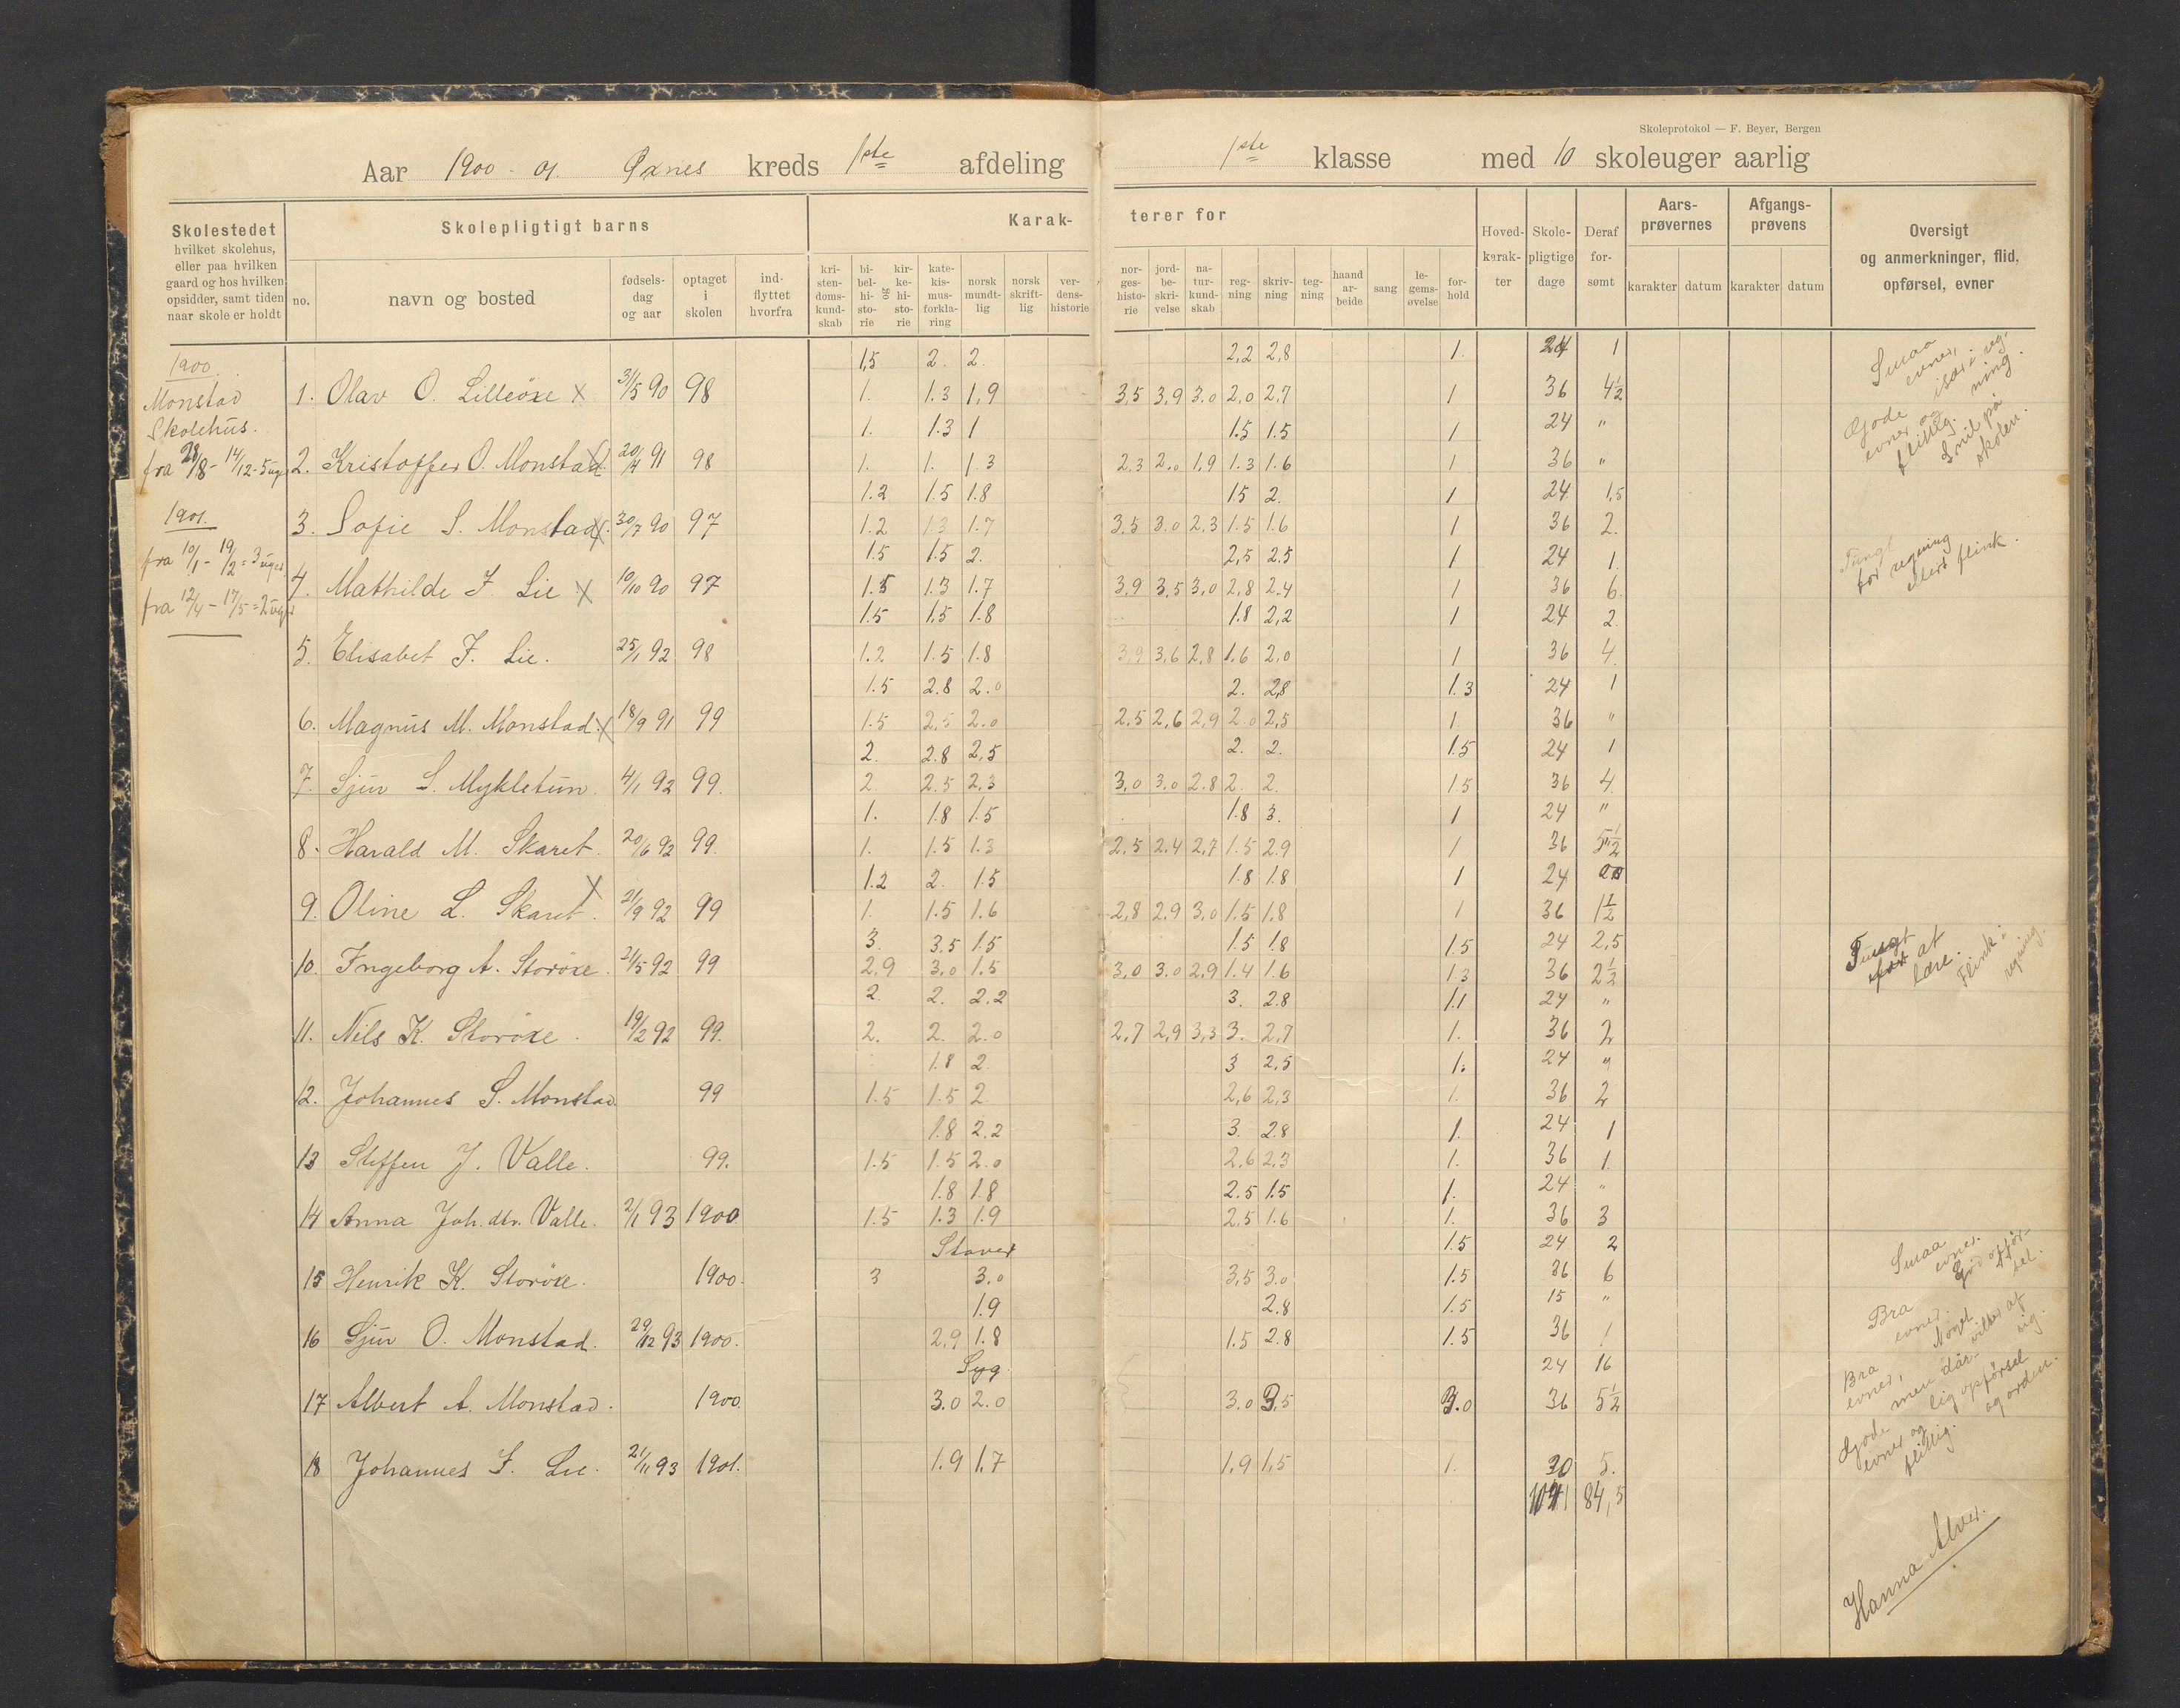 Skoleprotokol — F. Beyer, Bergen
Aar 1900 - 01. Øxnes kreds 1ste afdeling
1ste klasse med 10 skoleuger aarlig
Skolestedet
hvilket skolehus,
eller paa hvilken
gaard og hos hvilken
opsidder, samt tiden
naar skole er holdt
Skolepligtigt barns
no.
navn og bosted
fødsels-
dag
og aar
optaget
i
skolen
ind-
flyttet
hvorfra
Karak-
kri-
sten-
doms-
kund-
skab
bi-
bel-
hi-
sto-
rie
og
kir-
ke-
hi-
sto-
rie
kate-
kis-
mus-
forkla-
ring
norsk
mundt-
lig
norsk
skrift-
lig
ver-
dens-
historie
terer for
nor-
ges-
histo-
rie
jord-
be-
skri-
velse
na-
tur-
kund-
skab
reg-
ning
skriv-
ning
teg-
ning
haand
ar-
beide
sang
le-
gems-
øvelse
for-
hold
Hoved-
karak-
ter
Skole-
pligtige
dage
Deraf
for-
sømt
Aars-
prøvernes
karakter datum
Afgangs-
prøvens
karakter datum
Oversigt
og anmerkninger, flid,
opførsel, evner
1900.
Monstad
Skolehus.
fra 28/8 - 14/12 - 5 uger
1901.
fra 10/1 - 19/2 = 3 uger
fra 12/4 - 17/5 = 2 uger
1,5 2. 2. 2,2 2,8 1. 24 1
1. Olav O. Lilleöxe x 31/5 90 98 1. 1.3 1,9 3,5 3,9 3.0 2,0 2,7 1 36 4½
1. 1.3 1 1.5 1.5 1 24 "
2. Kristoffer O. Monstad 20/4 91 98 1. 1. 1.3 2.3 2.0 1,9 1.3 1.6 1 36 "
1.2 1.5 1.8 1.5 2. 1 24 1,5
3. Sofie S. Monstad x 30/7 90 97 1.2 1.3 1.7 3.5 3.0 2,3 1.5 1.6 1 36 2.
1.5 1.5 2. 2,5 2.5 1 24 1.
4. Mathilde J. Lie x 10/10 90 97 1.5 1.3 1.7 3.9 3.5 3,0 2,8 2.4 1 36 6.
1.5 1.5 1.8 1.8 2,2 1 24 2.
5. Elisabet J. Lie. 25/1 92 98 1.2 1.5 1.8 3,9 3,6 2,8 1,6 2,0 1 36 4.
1.5 2.8 2.0 2. 2,8 1.3 24 1
6. Magnus M. Monstad. x 18/9 91 99 1.5 2,5 2.0 2,5 2,6 2,9 2.0 2,5 1. 36 "
2. 2.8 2,5 2. 2. 1.5 24 1
7. Sjur S. Mykletun. 4/1 92 99. 2. 2.5 2,3 3,0 3.0 2.8 2. 2. 1.5 36 4.
1. 1.8 1.5 1.8 3. 1 24 "
8. Harald M. Skaret. 20/6 92 99. 1. 1.5 1.3 2,5 2.4 2,7 1.5 2.9 1 36 5½
1.2 2. 1.5 1.8 1.8 1 24
9. Oline L. Skaret. x 21/9 92 99 1. 1.5 1.6 2,8 2.9 3,0 1.5 1.8 1 36 1½
3. 3.5 1.5 1.5 1.8 1.5 24 2,5
10. Ingeborg A. Storöxe. 21/5 92 99 2,9 3,0 1.5 3,0 3.0 2,9 1.4 1.6 1.3 36 2½
2. 2. 2.2 3. 2.8 1.1 24 "
11. Nils K. Storöxe. 19/2 92 99. 2. 2. 2.0 2,7 2,9 3,3 3. 2,7 1. 36 2
1.8 2. 3 2,5 1. 24 "
12. Johannes S. Monstad. 99 1.5 1.5 2. 2,6 2,3 1. 36 2
1.8 2.2 3. 2.8 1. 24 1
13 Steffen J. Valle. 99. 1.5 1.5 2.0 2,6 2,3 1. 36 1.
1.8 1.8 2.5 1.5 1. 24 "
14 Anna Joh. dtr. Valle. 2/1 93 1900. 1.5 1.3 1.9 2,5 1.6 1. 36 3
Staver 1.5 24 2
15 Henrik K. Storöxe. 1900. 3 3.0 3,5 3.0 1.5 36 6
1.9 2.8 1.5 15 "
16 Sjur O. Monstad. 29/12 93 1900. 2,9 1.8 1.5 2.8 1.5 36 1
Syg. 24 16
17 Albert A. Monstad. 1900. 3.0 2.0 3.0 3,5 3.0 36 5½
18 Johannes J. Lie. 21/11 93 1901. 1.9 1,7 1,9 1,5 1. 30 5.
84,5
Smaa
evner,
især i reg-
ning.
Gode
evner og
flittig.
Snil på
skolen.
Tungt
for regning
ellers flink.
Tungt
for at
lære.
Flink i
regning.
Smaa
evner.
God opför-
sel.
Bra
evner.
Noget
vilter af
sig.
Bra
evner,
men dår-
lig opförsel
og orden.
Gode
evner og
flittig.
Hanna Alver.